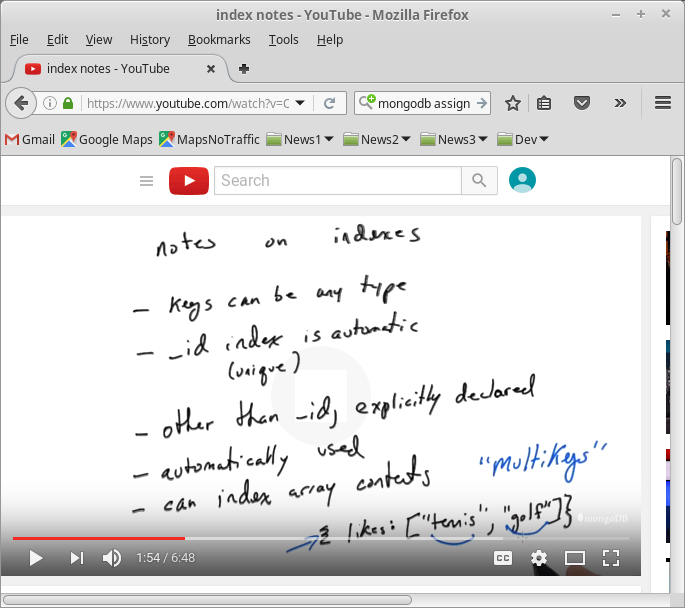 index notes - YouTube - Mozilla Firefox
File Edit View History Bookmarks Tools Help
index notes - YouTube
https://www.youtube.com/watch?v=C
mongodb assign
Gmail Google Maps MapsNoTraffic News1 News2 News3 Dev
Search
notes on indexes
- keys can be any type
- _id index is automatic
(unique)
- other than _id, explicitly declared
- automatically used
- can index array contents "multikeys"
{ likes: ["tennis", "golf"]}
mongoDB
1:54 / 6:48
CC